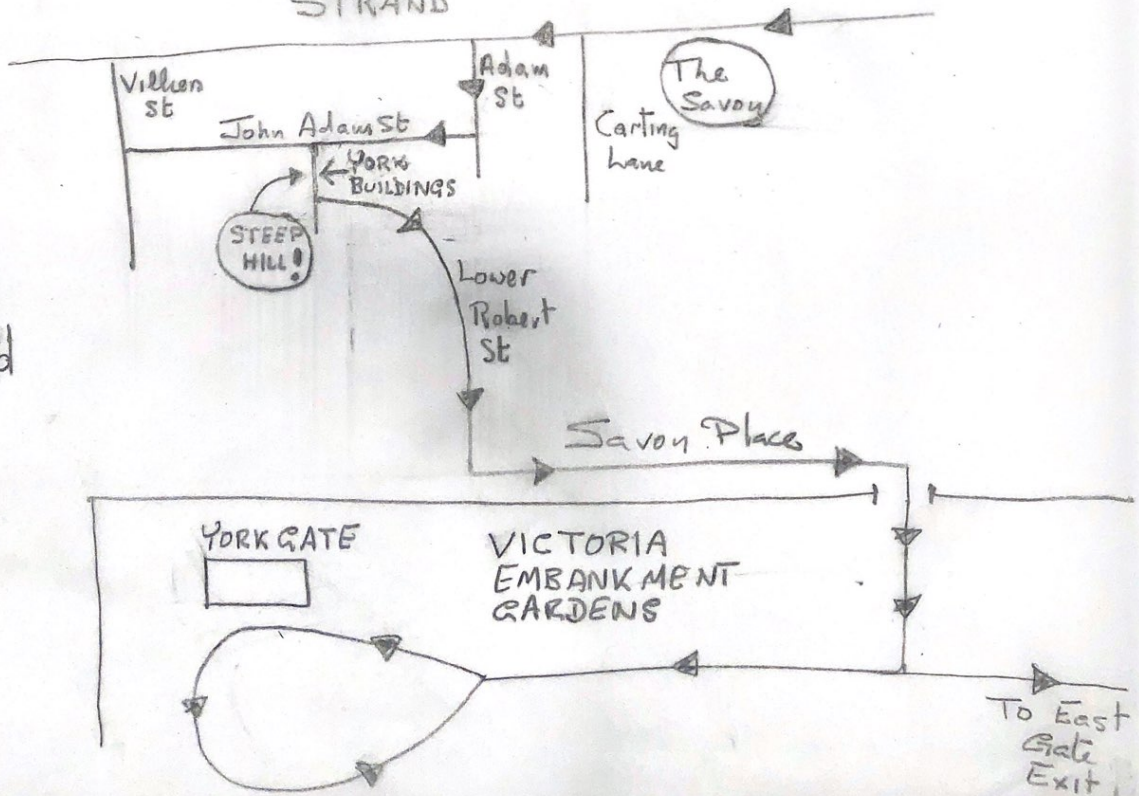 STRAND
Adam
St
The
Savoy
St
John Adam St
Carting
Lane
YORK
BUILDINGS
STEEP
HILL!
Lower
Robert
St
d
Savoy Place
YORK GATE
VICTORIA
EMBANKMENT
GARDENS
To East
Gate
Exit